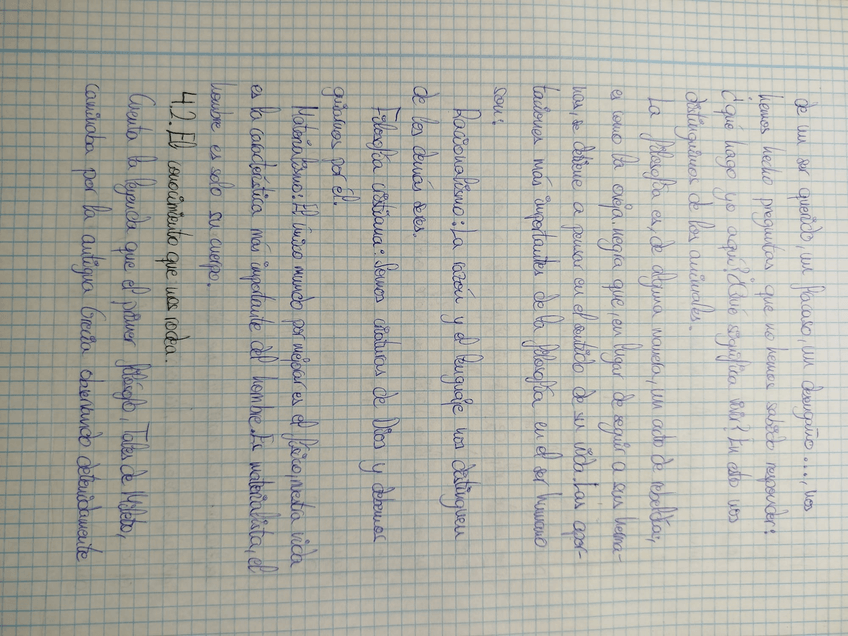 de un ser querido, un fracaso, un desengaño..., nos
hemos hecho preguntas que no hemos sabido responder:
¿qué hago yo aquí? ¿Qué significa vivir? En esto nos
distinguimos de los animales.
La filosofía es, de alguna manera, un acto de rebeldía,
es como la oveja negra que, en lugar de seguir a sus herma-
nas, se detiene a pensar en el sentido de su vida. Las apor-
taciones más importantes de la filosofía en el ser humano
son:
Racionalismo: La razón y el lenguaje nos distinguen
de los demás seres.
Filosofía cristiana: Somos criaturas de Dios y debemos
guiarnos por él.
Materialismo: El único mundo por mejorar es el físico, nuestra vida
es la característica más importante del hombre. En materialista, el
hombre es solo su cuerpo.
4.2. El conocimiento que nos rodea.
Cuenta la leyenda que el primer filósofo, Tales de Mileto,
caminaba por la antigua Grecia observando detenidamente